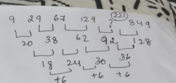 (221)
9 29 67 129 ? 349
20 38 62 92 128
18 24 30 36
+6 +6 +6